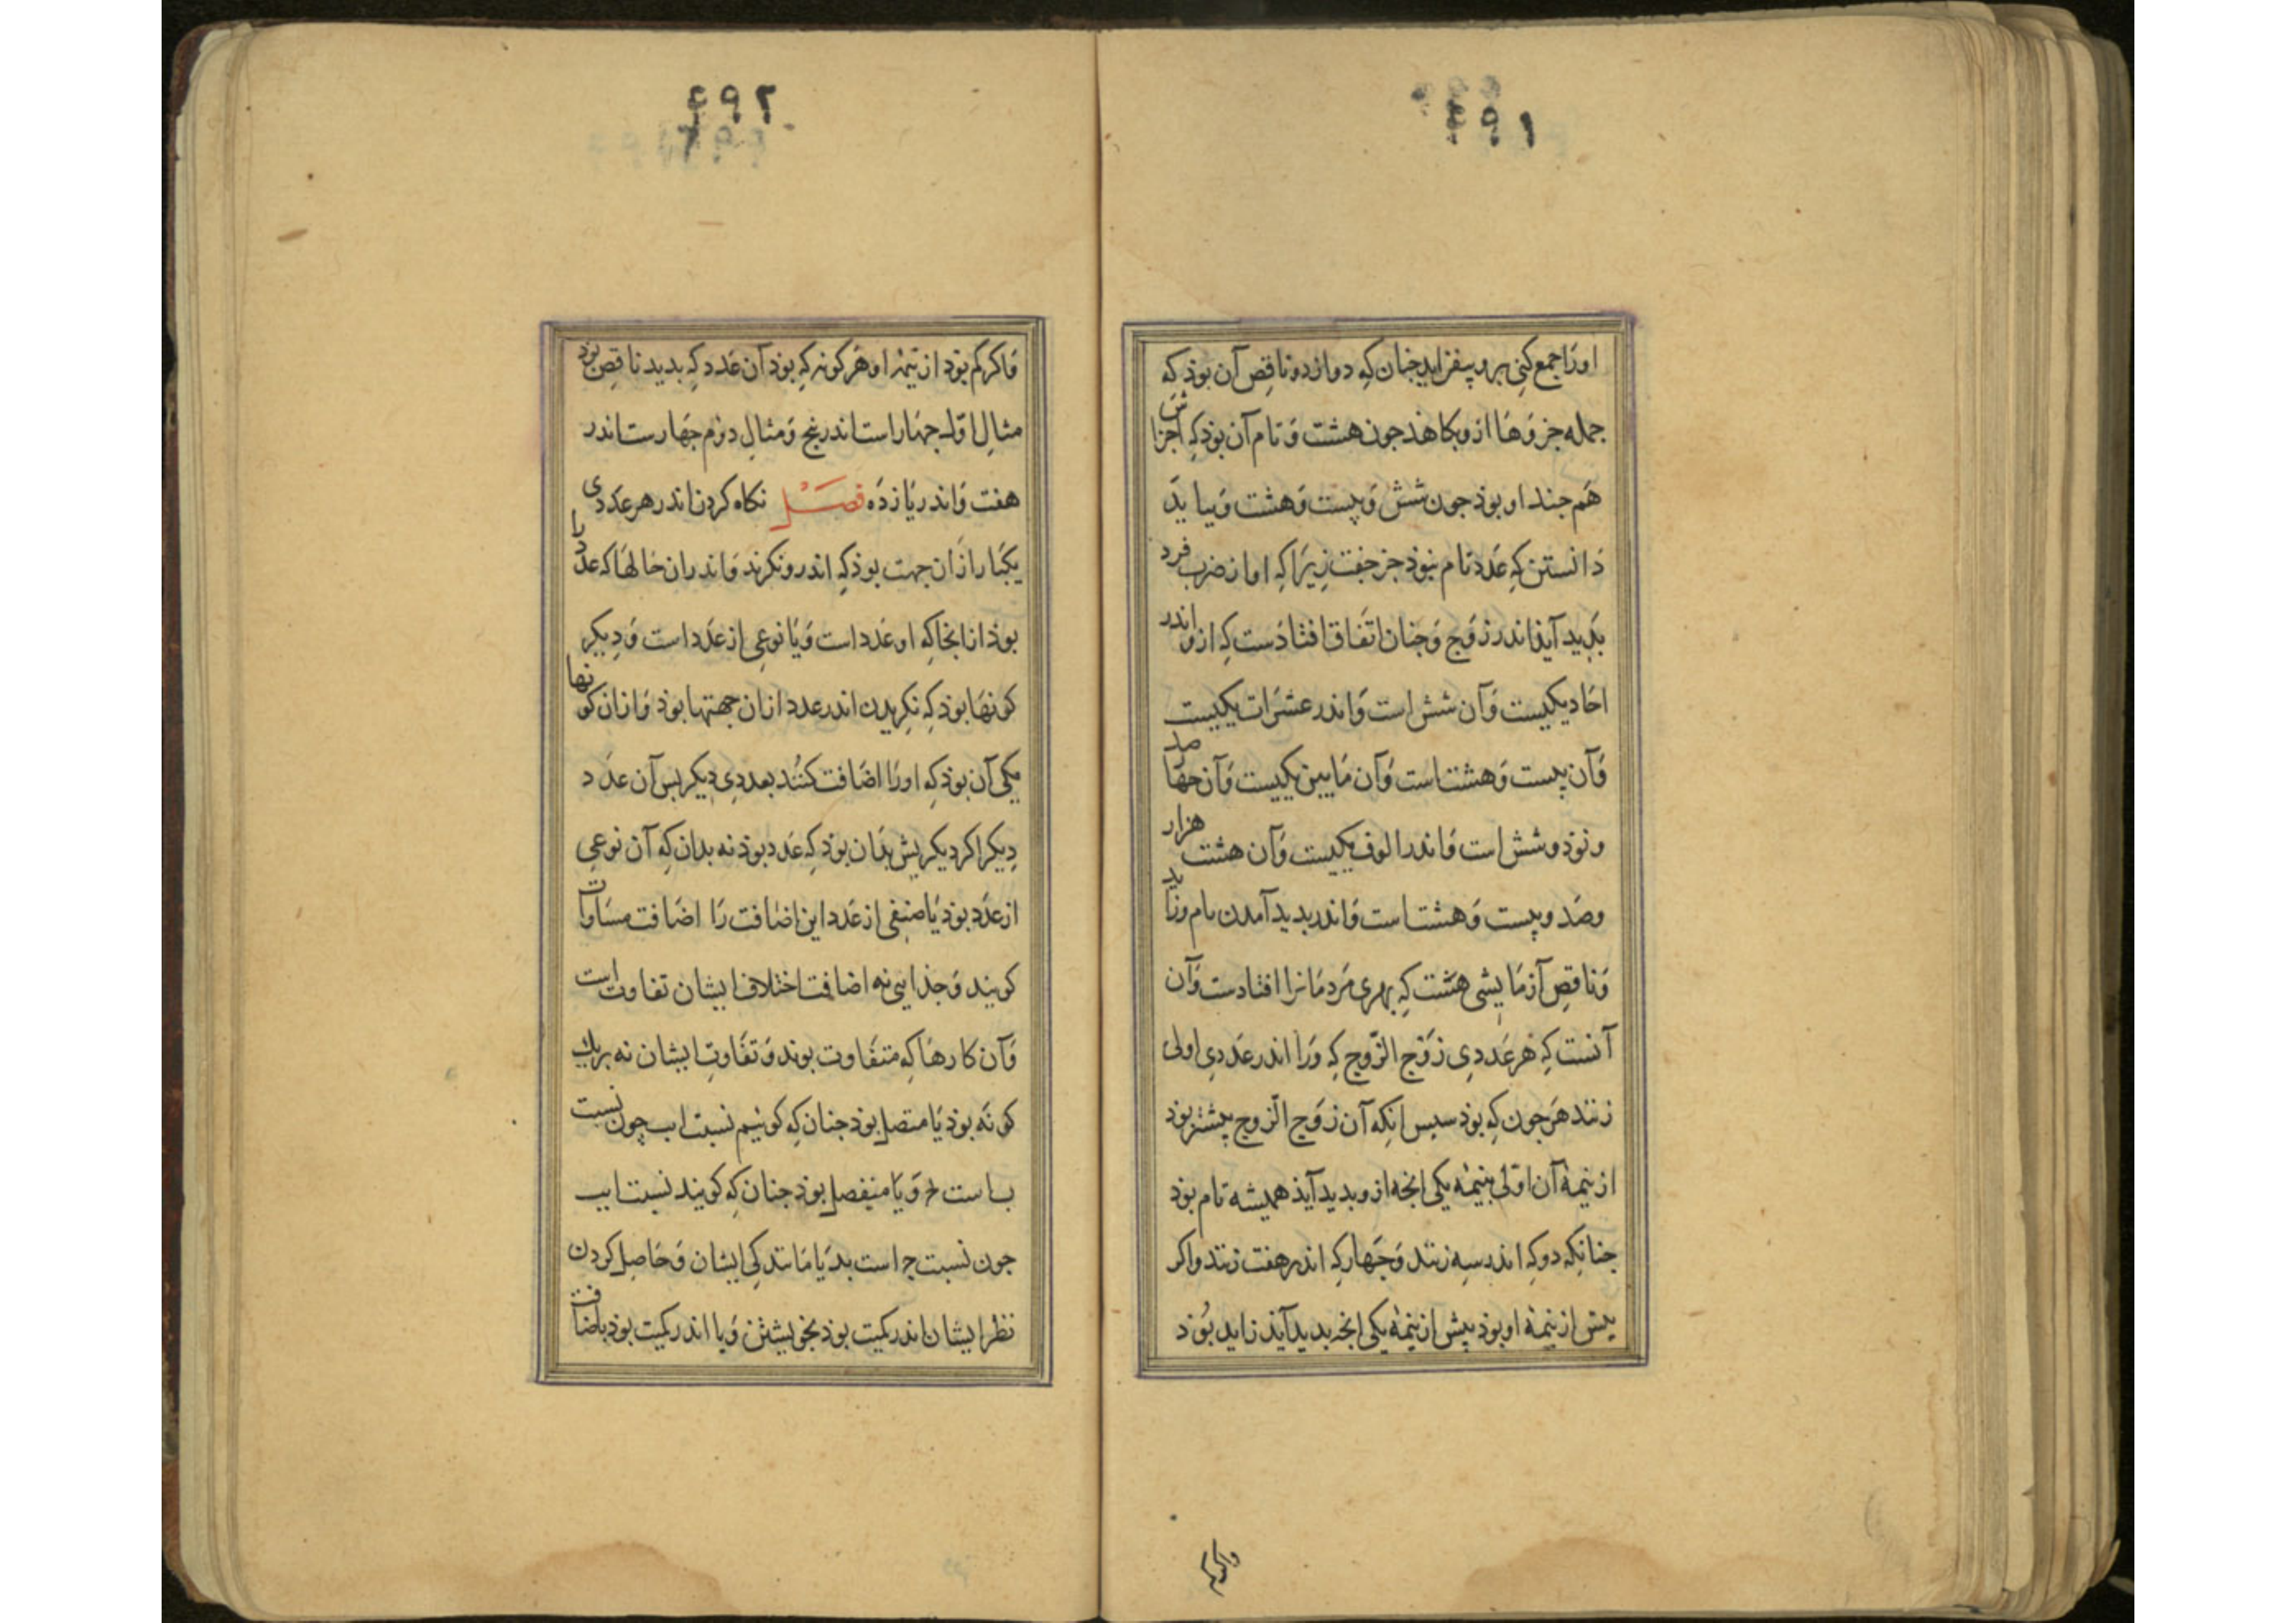 ٤٩١
اورا جمع کنی برو بیفزاید جنان کِه دوازده و ناقِص آن بوذ که
جمله جزوَها ازو بکاهذ جون هشت وَ تام آن بوذ کِه اجزاش
هَم جند او بوذ جون شش وَ بیست وَ هشت وَ بباید
دَانستن کِه عَدد تام نبوذ جز جفت زیرَا کِه او از ضرب فرد
بَدید آیذ اندر زَوج وَ جنان اتّفاق افتاذست کِه ازو اندر
احَاد یکیست وَ آن شش است وَ اندر عشرَات یکیست
وَ آن بیست وَ هشت است وَ آن مَا بین یکیست وَ آن جهار صد
و نوذ و شش است وَ اندر الوف یکیست وَ آن هشت هزار
و صَد و بیست وَ هشت است وَ اندر بدید آمدن تام و زاید
وَ ناقِص آزمَایشی هسَت کِه بهری مَردمَانرا افتاذست وَ آن
آنست کِه هَر عَددِی زَوج الزّوج کِه وَرا اندر عَددِی اولی
زنند هَر جون کِه بوذ سپس انکِه آن زَوج الزّوج بیشتر بوذ
از نیمۀ آن اوّلی بنیمۀ یکی انجه ازو بدید آیذ همیشه تام بوذ
جنانکِه دو کِه اندر سِه زنند وَ جَهار کِه اندر هفت زنند و اکر
بیش از نیمۀ او بوذ بیش از نیمۀ یکی انجه بدید آیذ زاید بُوَذ
واکر
٤٩٢
وَ اکر کم بوذ از نیمۀ او هَر کونه کِه بوذ آن عَدد کِه بدید ناقِص بوذ
مثالِ اوّل جهَار است اندر پنج وَ مثالِ دوّم جَهارست اندر
هفت وَ اندر یَازدَه فصَـــْل نکاه کردن اندر هر عَددی
یکبَار ازَان جهت بوذ کِه اندرو نکرند وَ اندران حَالهَا که عدد را
بوذ از انجا کِه او عَدد است وَ یَا نوعِی از عَدد است وَ دِیکر
کونهَا بوذ کِه نکِریدن اندر عدد ازان جهتها بوذ وَ ازان کونها
یکی آن بوذ کِه اورَا اضَافت کنُند بعددِی دِیکر بس آن عدَد
دِیکر اکر دیکر بیش بدَان بوذ کِه عَدد بوذ نه بدان کِه آن نوعِی
از عدَد بوذ یَا صِنفی از عَدد این اضَافت رَا اضَافت مسَاوات
کویند وَ جذایی نه اضافت اختلاف ایشان تفاوت است
وَ آن کارهَا کِه متفَاوت بوند وَ تفَاوتِ ایشان نه بریک
کونَه بوذ یَا متصِل بوذ جنان کِه کوئیم نسبت اب چون نسبت
ب است وَ یَا منفصِل بوذ جنان کِه کویند نسبت اب
جون نسبت ج است بد یَا مَانندکی ایشان وَ حَاصِل کردن
نظر ایشان اندر کمیت بوذ بخویشتن وَ یا اندر کمیت بوذ باضافت